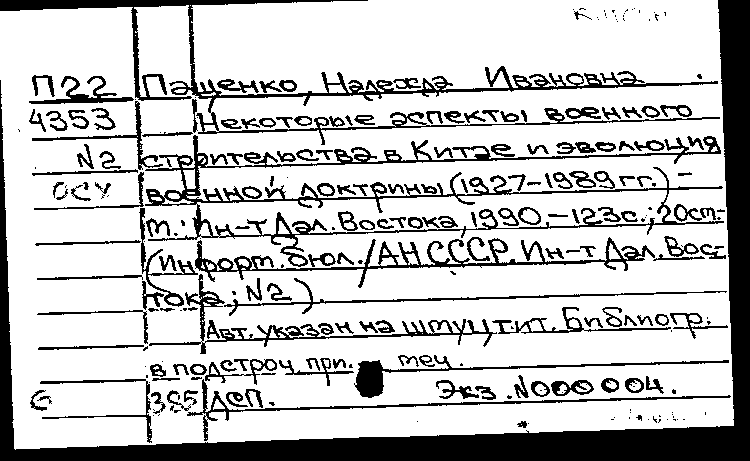 П22 Пащенко, Надежда Ивановна
4353 Некоторые аспекты военного
N2 строительства в Китае и эволюция
ОСУ военной доктрины (1927–1989 гг.) –
м.: Ин-т Дал. Востока, 1990, – 123 с.; 20 см –
(Информ. бюл. / АН СССР. Ин-т Дал. Вос-
тока; N2).
Авт. указан на шмуцтит. Библиогр.
в подстроч. прим. теч.
385 ДСП. Экз. N000004.